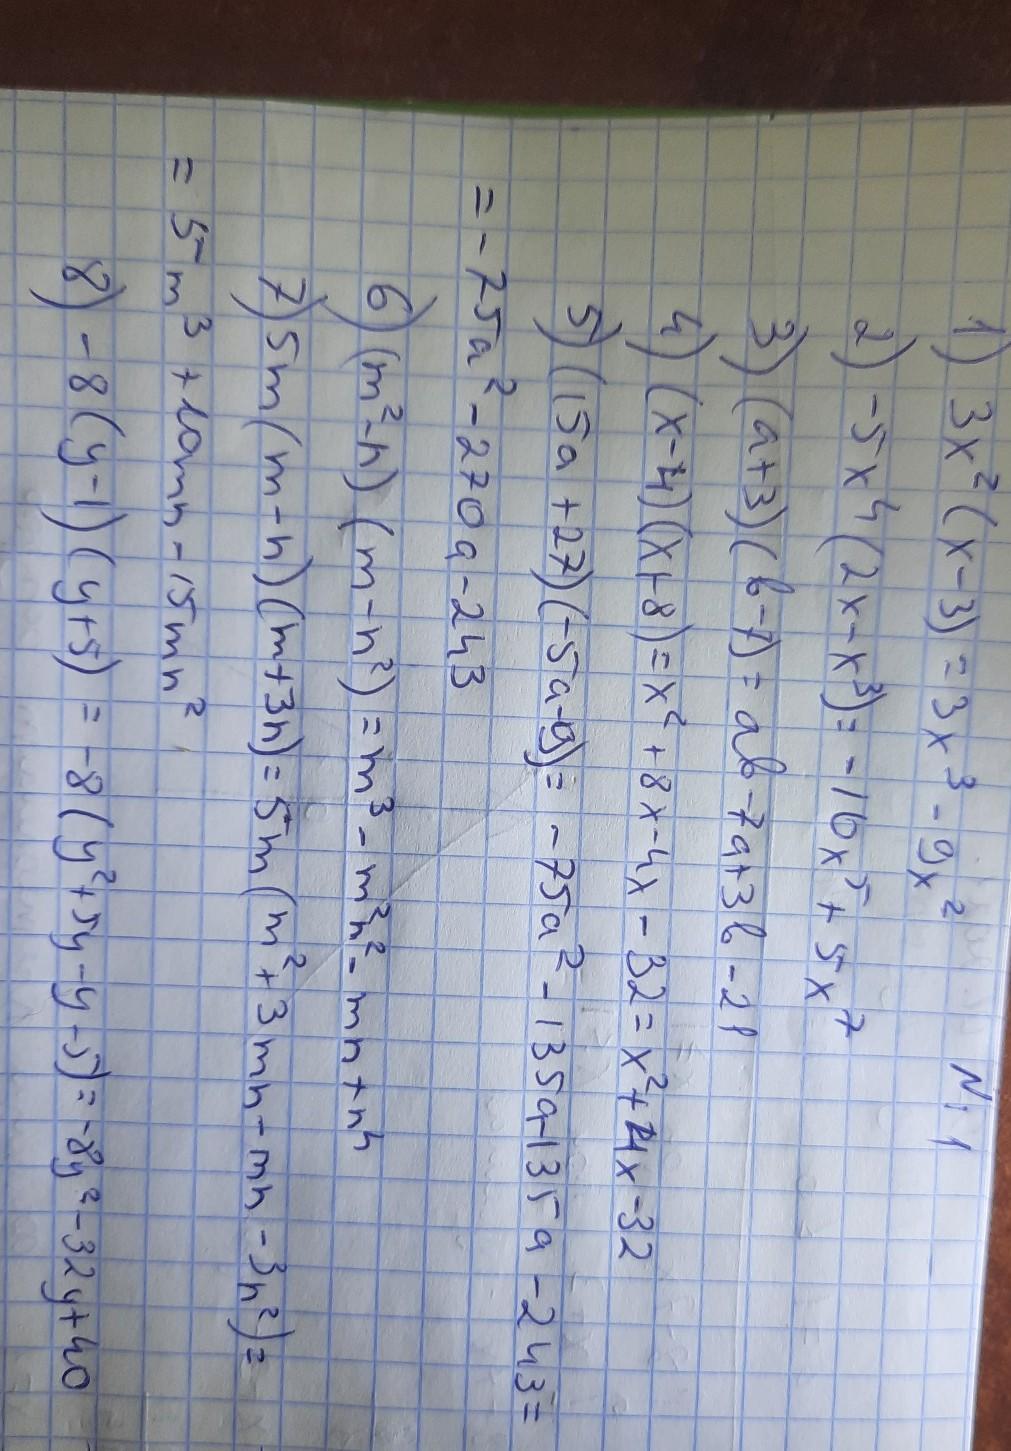 N:1
1) 3x²(x-3)=3x³-9x²
2) -5x⁴(2x-x³)=-10x⁵+5x⁷
3) (a+3)(b-7)=ab-7a+3b-21
4) (x-4)(x+8)=x²+8x-4x-32=x²+4x-32
5) (15a+27)(-5a-9)=-75a²-135a-135a-243=
=-75a²-270a-243
6) (m²-n)(m-n²)=m³-m²n²-mn+n³
7) 5m(m-n)(m+3n)=5m(m²+3mn-mn-3n²)=
=5m³+10mn-15mn²
8) -8(y-1)(y+5)=-8(y²+5y-y-5)=-8y²-32y+40